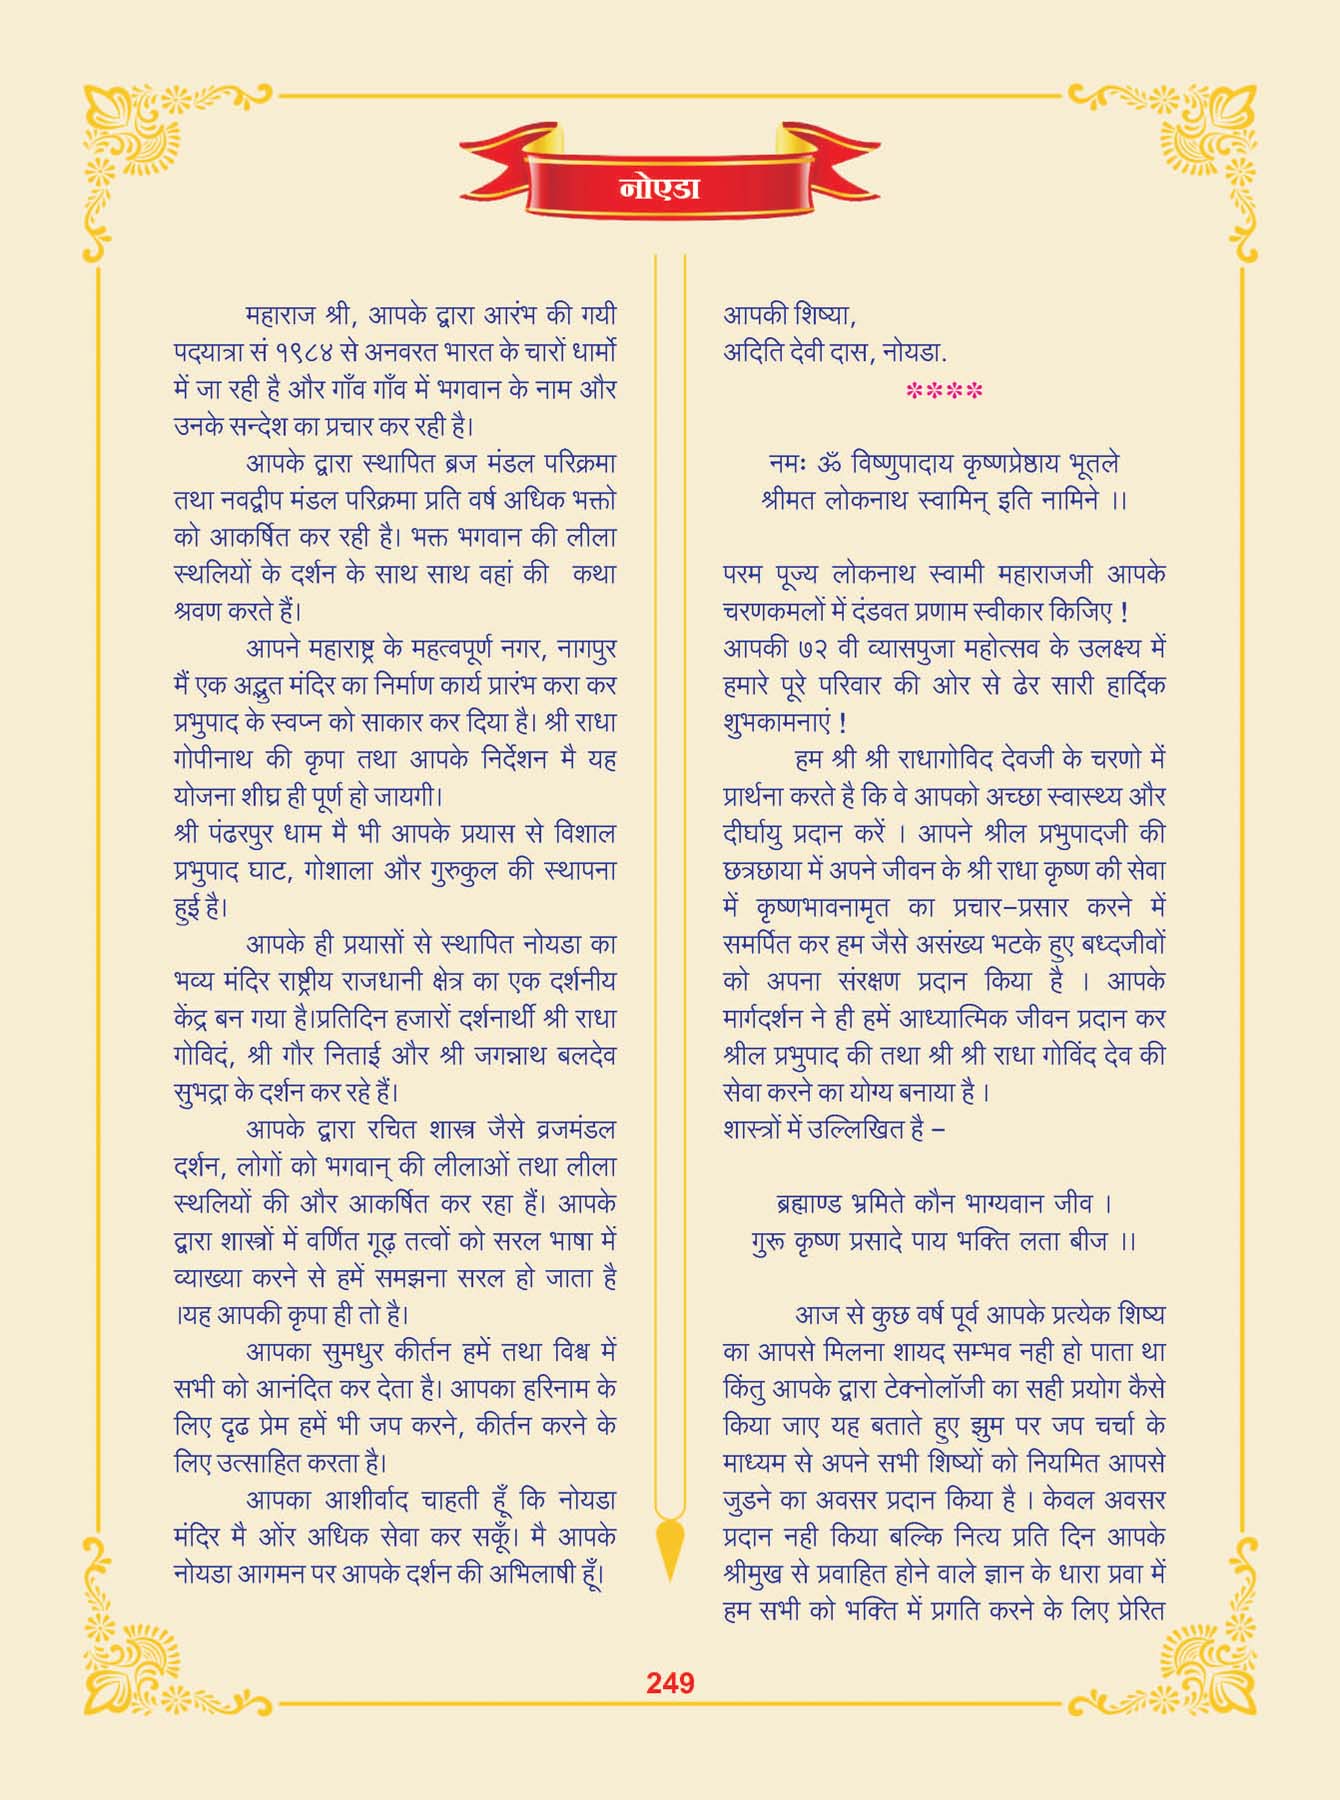 नोएडा
महाराज श्री, आपके द्वारा आरंभ की गयी
पदयात्रा सं १९८४ से अनवरत भारत के चारों धार्मो
में जा रही है और गाँव गाँव में भगवान के नाम और
उनके सन्देश का प्रचार कर रही है।
आपके द्वारा स्थापित ब्रज मंडल परिक्रमा
तथा नवद्वीप मंडल परिक्रमा प्रति वर्ष अधिक भक्तो
को आकर्षित कर रही है। भक्त भगवान की लीला
स्थलियों के दर्शन के साथ साथ वहां की कथा
श्रवण करते हैं।
आपने महाराष्ट्र के महत्वपूर्ण नगर, नागपुर
मैं एक अद्भुत मंदिर का निर्माण कार्य प्रारंभ करा कर
प्रभुपाद के स्वप्न को साकार कर दिया है। श्री राधा
गोपीनाथ की कृपा तथा आपके निर्देशन मै यह
योजना शीघ्र ही पूर्ण हो जायगी।
श्री पंढरपुर धाम मै भी आपके प्रयास से विशाल
प्रभुपाद घाट, गोशाला और गुरुकुल की स्थापना
हुई है।
आपके ही प्रयासों से स्थापित नोयडा का
भव्य मंदिर राष्ट्रीय राजधानी क्षेत्र का एक दर्शनीय
केंद्र बन गया है।प्रतिदिन हजारों दर्शनार्थी श्री राधा
गोविदं, श्री गौर निताई और श्री जगन्नाथ बलदेव
सुभद्रा के दर्शन कर रहे हैं।
आपके द्वारा रचित शास्त्र जैसे व्रजमंडल
दर्शन, लोगों को भगवान् की लीलाओं तथा लीला
स्थलियों की और आकर्षित कर रहा हैं। आपके
द्वारा शास्त्रों में वर्णित गूढ़ तत्वों को सरल भाषा में
व्याख्या करने से हमें समझना सरल हो जाता है
।यह आपकी कृपा ही तो है।
आपका सुमधुर कीर्तन हमें तथा विश्व में
सभी को आनंदित कर देता है। आपका हरिनाम के
लिए दृढ प्रेम हमें भी जप करने, कीर्तन करने के
लिए उत्साहित करता है।
आपका आशीर्वाद चाहती हूँ कि नोयडा
मंदिर मै ओंर अधिक सेवा कर सकूँ। मै आपके
नोयडा आगमन पर आपके दर्शन की अभिलाषी हूँ।
आपकी शिष्या,
अदिति देवी दास, नोयडा.
****
नमः ॐ विष्णुपादाय कृष्णप्रेष्ठाय भूतले
श्रीमत लोकनाथ स्वामिन् इति नामिने ।।
परम पूज्य लोकनाथ स्वामी महाराजजी आपके
चरणकमलों में दंडवत प्रणाम स्वीकार किजिए !
आपकी ७२ वी व्यासपुजा महोत्सव के उलक्ष्य में
हमारे पूरे परिवार की ओर से ढेर सारी हार्दिक
शुभकामनाएं !
हम श्री श्री राधागोविद देवजी के चरणो में
प्रार्थना करते है कि वे आपको अच्छा स्वास्थ्य और
दीर्घायु प्रदान करें । आपने श्रील प्रभुपादजी की
छत्रछाया में अपने जीवन के श्री राधा कृष्ण की सेवा
में कृष्णभावनामृत का प्रचार-प्रसार करने में
समर्पित कर हम जैसे असंख्य भटके हुए बध्दजीवों
को अपना संरक्षण प्रदान किया है । आपके
मार्गदर्शन ने ही हमें आध्यात्मिक जीवन प्रदान कर
श्रील प्रभुपाद की तथा श्री श्री राधा गोविंद देव की
सेवा करने का योग्य बनाया है ।
शास्त्रों में उल्लिखित है –
ब्रह्माण्ड भ्रमिते कौन भाग्यवान जीव ।
गुरू कृष्ण प्रसादे पाय भक्ति लता बीज ।।
आज से कुछ वर्ष पूर्व आपके प्रत्येक शिष्य
का आपसे मिलना शायद सम्भव नही हो पाता था
किंतु आपके द्वारा टेक्नोलॉजी का सही प्रयोग कैसे
किया जाए यह बताते हुए झुम पर जप चर्चा के
माध्यम से अपने सभी शिष्यों को नियमित आपसे
जुडने का अवसर प्रदान किया है । केवल अवसर
प्रदान नही किया बल्कि नित्य प्रति दिन आपके
श्रीमुख से प्रवाहित होने वाले ज्ञान के धारा प्रवा में
हम सभी को भक्ति में प्रगति करने के लिए प्रेरित
249